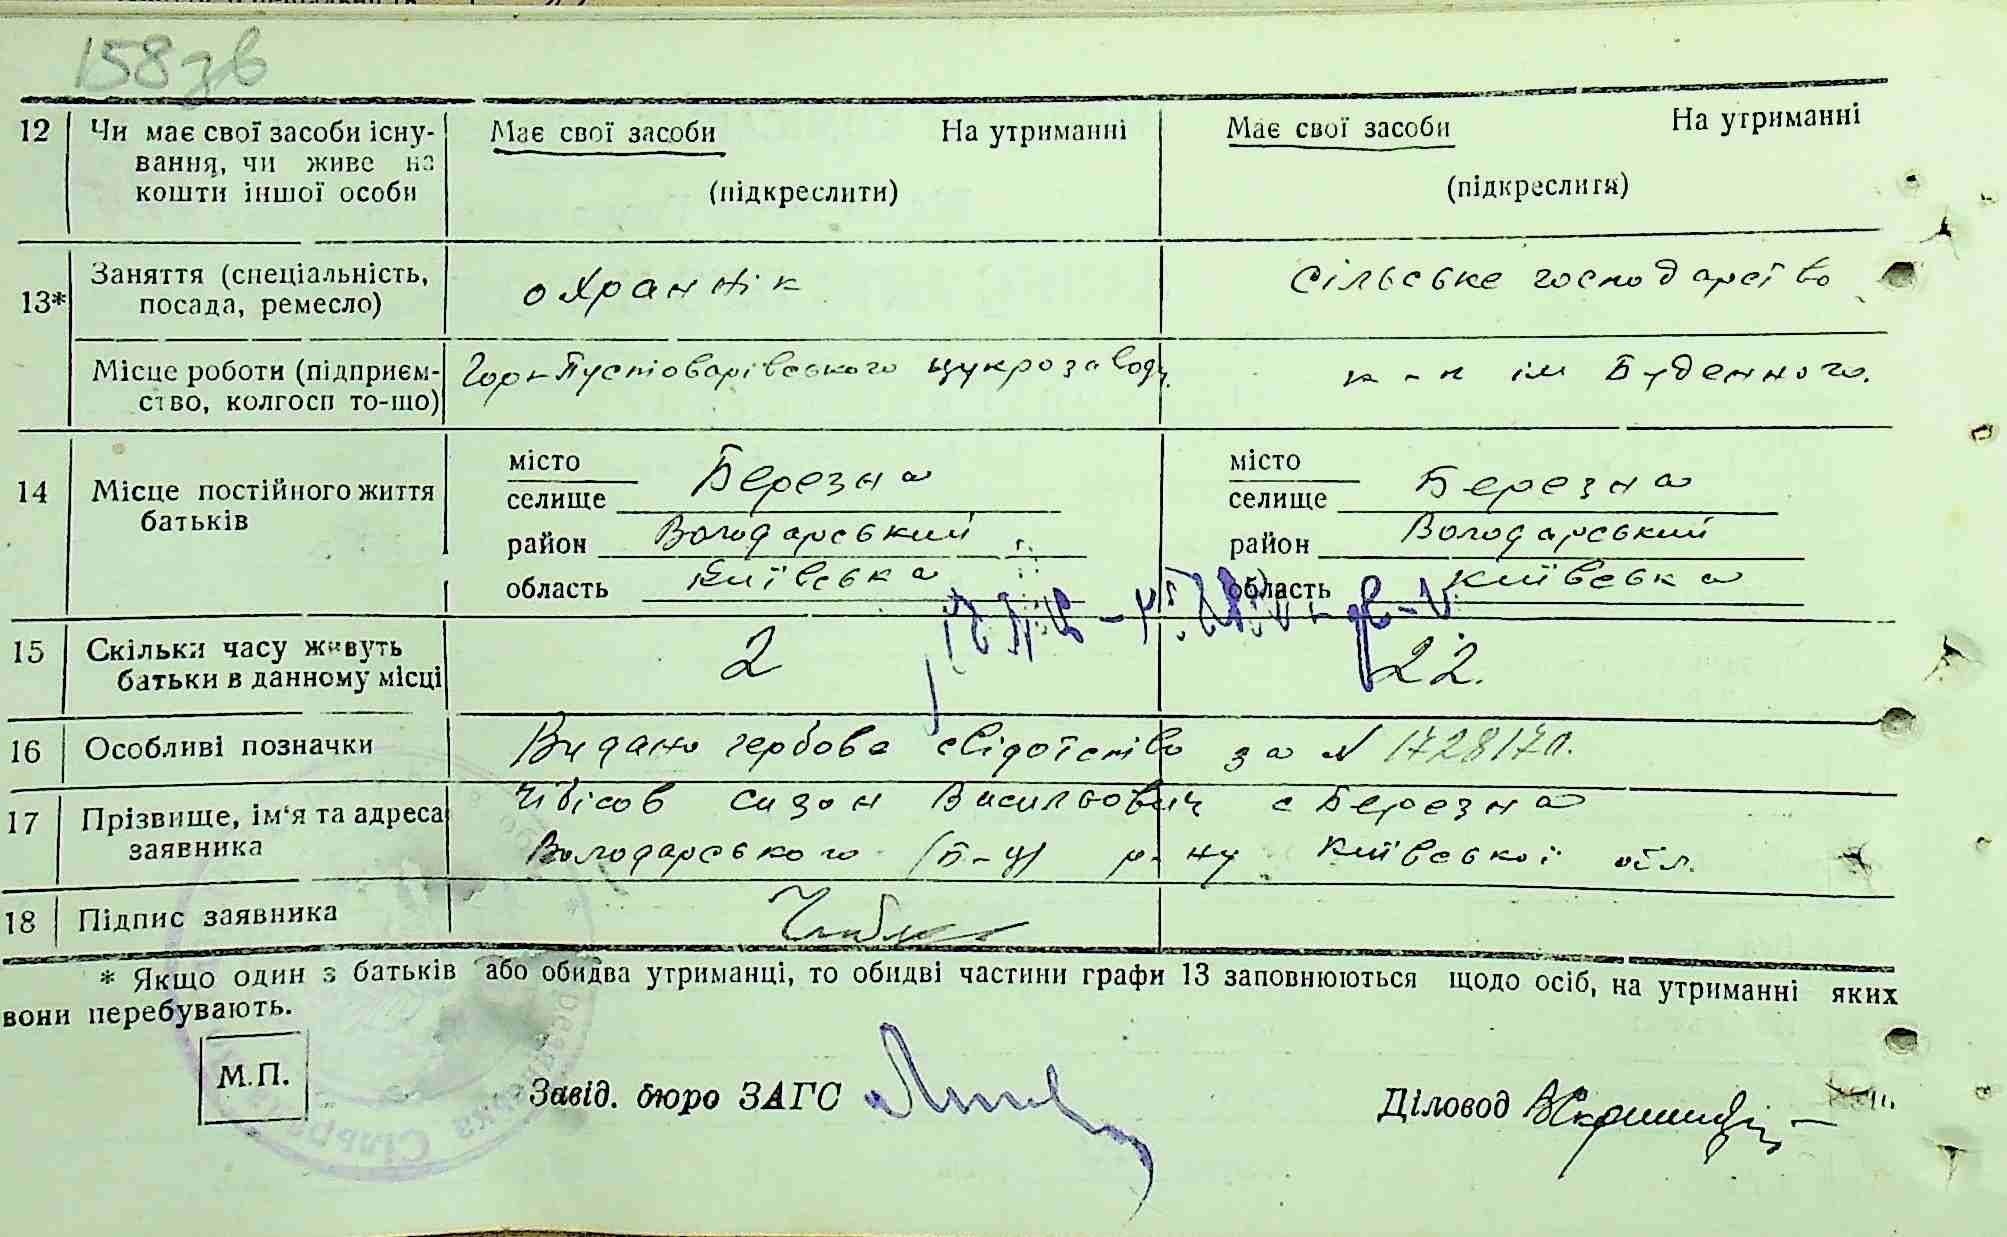 158зв
12 Чи має свої засоби існу- Має свої засоби На утриманні Має свої засоби На утриманні
вання, чи живе на
кошти іншої особи (підкреслити) (підкреслити)
13* Заняття (спеціальність, охранник Сільське господарство
посада, ремесло)
Місце роботи (підприєм- Горо-Пустоварівського цукрозаводу. к-п ім Буденного.
ство, колгосп то-що)
місто місто
14 Місце постійного життя селище Березна селище Березна
батьків район Володарський район Володарський
область Київська область Київська
15 Скільки часу живуть 2 22.
батьки в данному місці
16 Особливі позначки Видано гербове свідотство за N 172817
17 Прізвище, ім'я та адреса Чібісов Сизон Васильович с Березна
заявника Володарського (Б-Ц) р-ну Київської обл.
18 Підпис заявника
* Якщо один з батьків або обидва утриманці, то обидві частини графи 13 заповнюються щодо осіб, на утриманні яких
вони перебувають.
М.П.
Завід. бюро ЗАГС Діловод